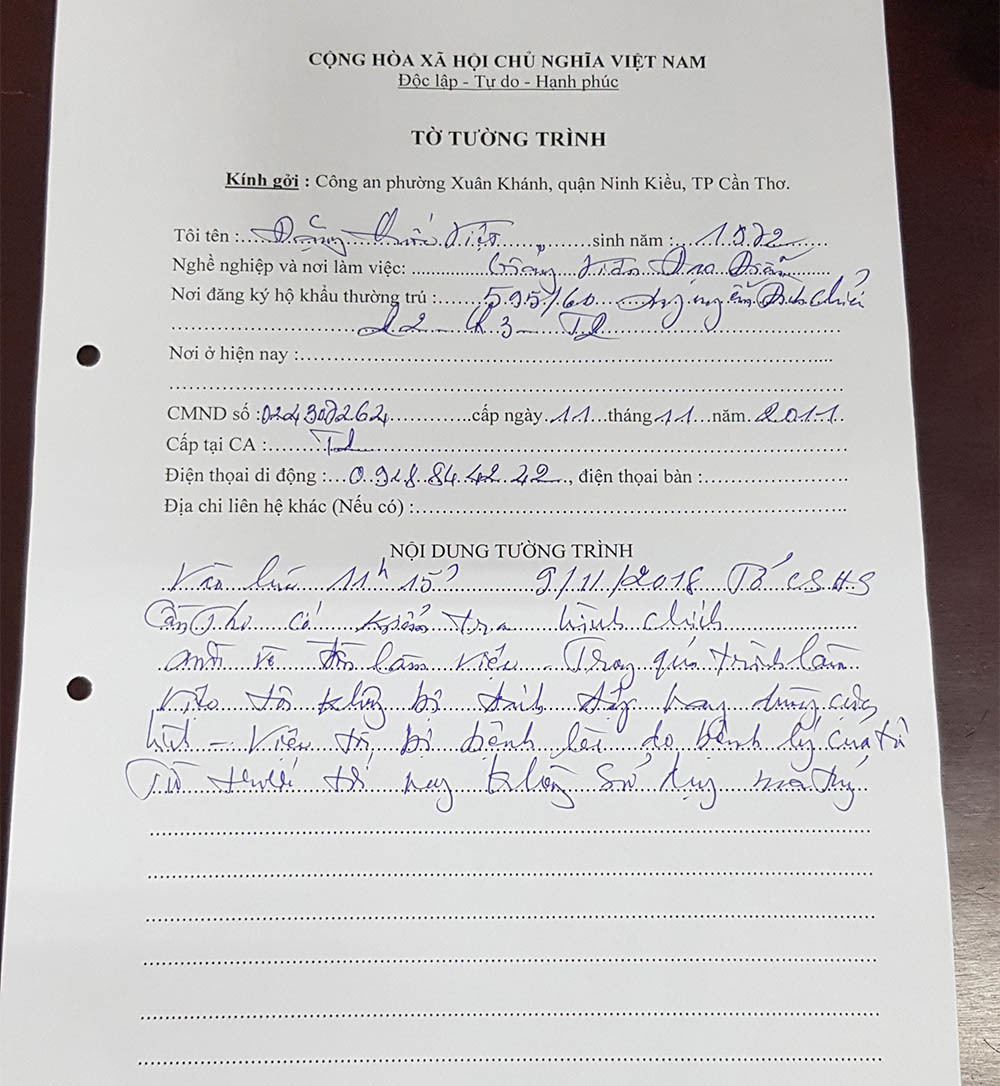 CỘNG HÒA XÃ HỘI CHỦ NGHĨA VIỆT NAM
Độc lập - Tự do - Hạnh phúc
TỜ TƯỜNG TRÌNH
Kính gởi : Công an phường Xuân Khánh, quận Ninh Kiều, TP Cần Thơ.
Tôi tên : Đặng Quốc Việt sinh năm : 1972
Nghề nghiệp và nơi làm việc:
Nơi đăng ký hộ khẩu thường trú : 595/60 Nguyễn Đình Chiểu
Nơi ở hiện nay :
CMND số : 024307264 cấp ngày 11 tháng 11 năm 2011
Cấp tại CA :
Điện thoại di động : 0.918.84.42.22, điện thoại bàn :
Địa chỉ liên hệ khác (Nếu có) :
NỘI DUNG TƯỜNG TRÌNH
Vào lúc 11h 15' 9/11/2018 Tổ CSHS
Cần Thơ có kiểm tra hành chích
mời về làm việc - Trong quá trình làm
việc tôi không bị đánh đập hay dùng cực
hình - Việc tôi bị bệnh là do bệnh lý của tôi
Từ trước tới nay không sử dụng ma túy